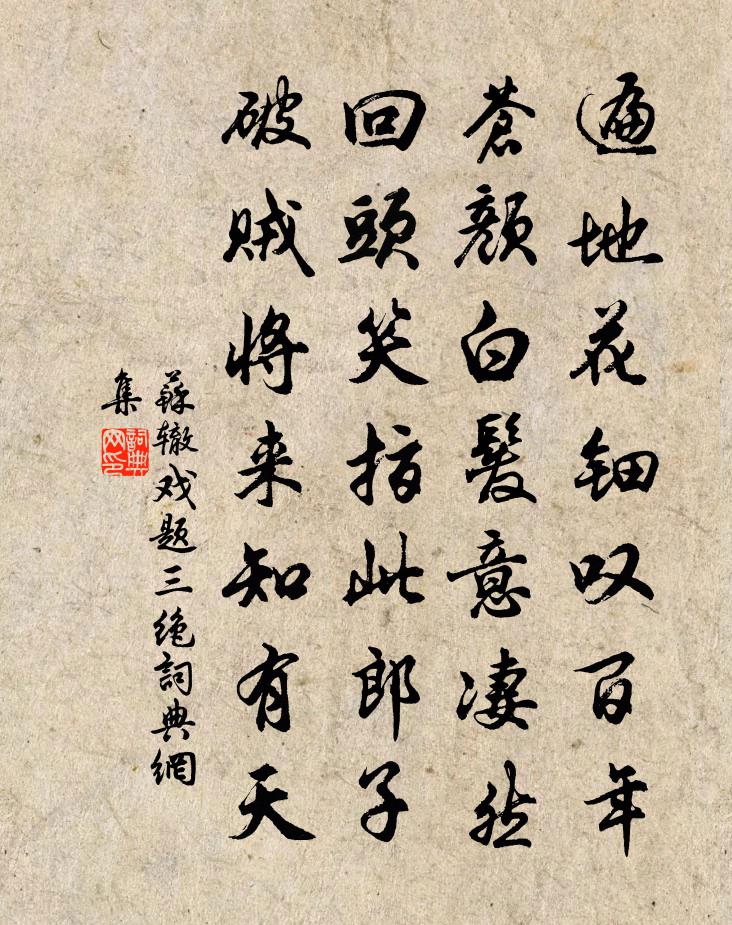 遍地花钿叹百年
蒼顔白髮意凄然
回頭笑指此郎子
破賊將来知有天
蘇辙戏题三绝詞典網
集
詞典
网印